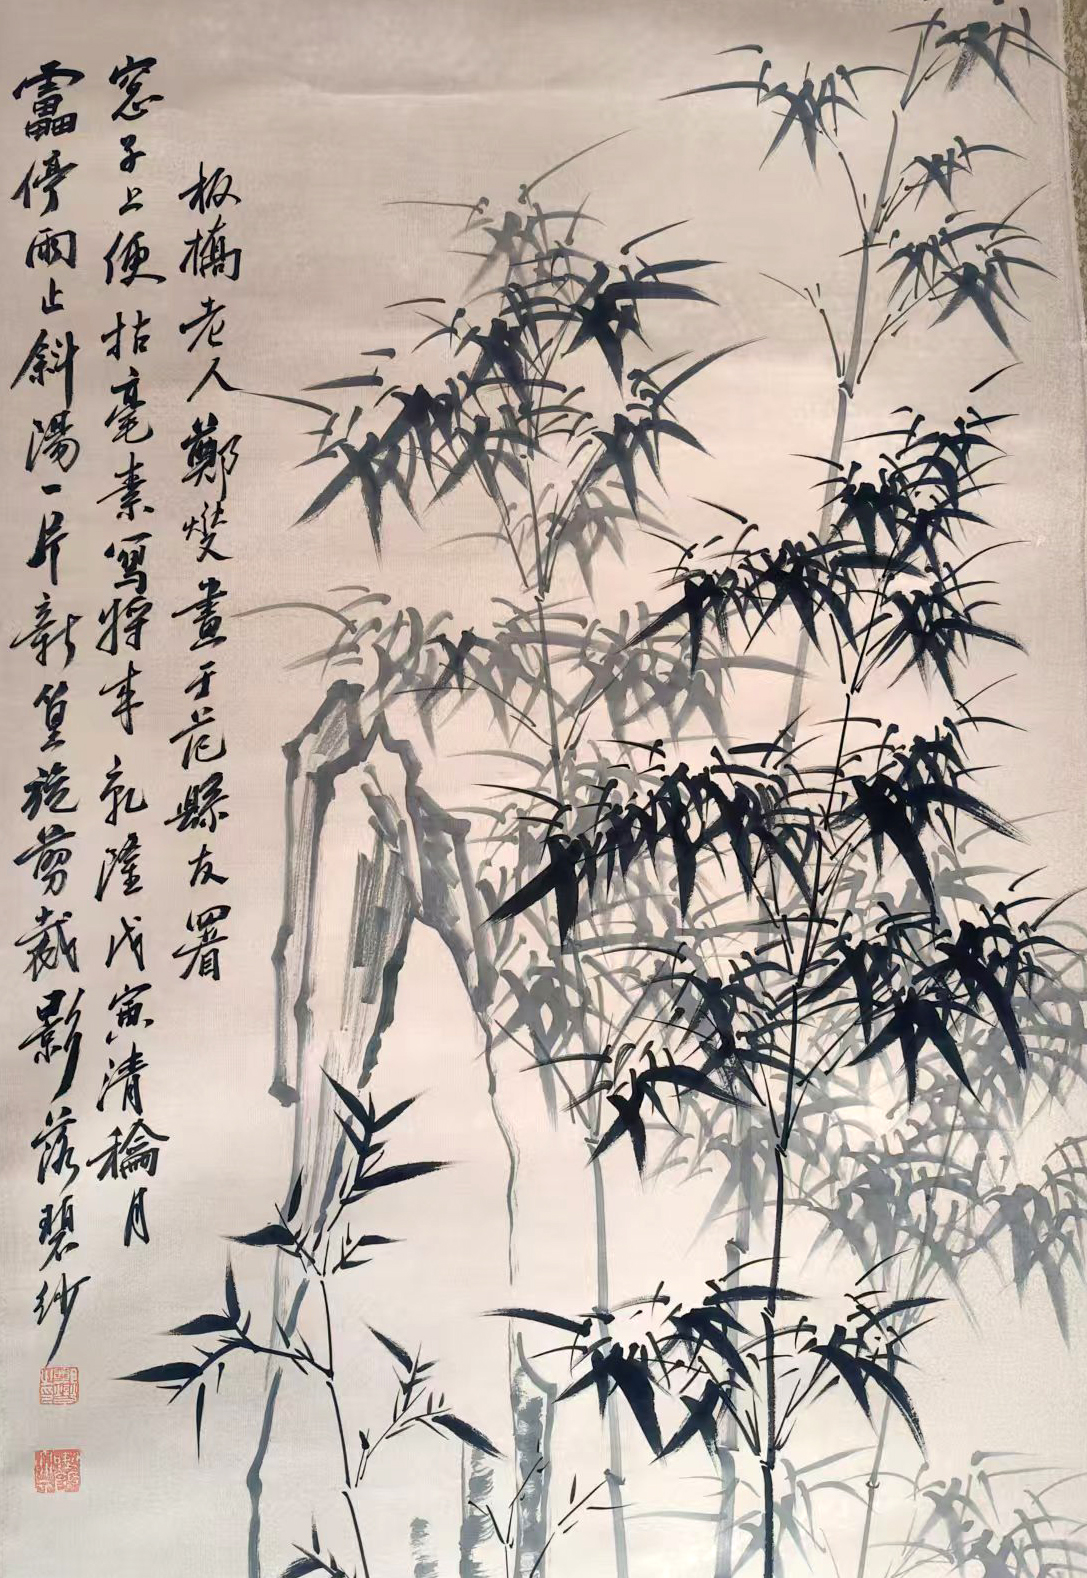 靁停雨止斜陽一片新篁旋剪裁影落碧紗
窓子上便拈毫素寫將来乾隆戊寅清龢月
板橋老人鄭燮畫于范縣友署